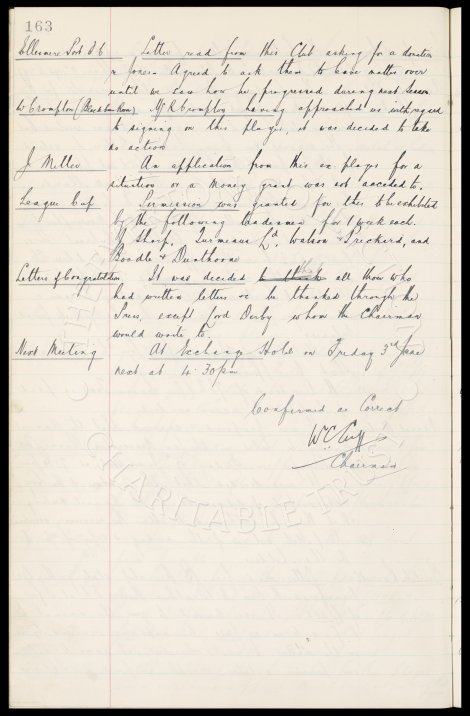 163
Ellesmere Port F C Letter read from this Club asking for a donation
re Jones. Agreed to ask them to leave matter over
until we saw how he progressed during next season
W Crompton (Blackburn Rovers) Mr R Crompton having approached us with regard
to signing on this player, it was decided to take
no action
J. Meller An application from this ex player for a
situation or a money grant was not acceded to.
League Cup Permission was granted for this to be exhibited
by the following tradesmen for 1 week each.
Sharp, Ld, Watson Prickard, and
Boodle & Dunthorne
Letters of Congratulation It was decided that all those who
had written letters &c be thanked through the
Press, except Lord Derby whom the Chairman
would write to.
Next Meeting At Exchange Hotel on Friday 3rd June
next at 4.30pm
Confirmed as Correct
W. C. Cuff
Chairman
CHARITABLE TRUST